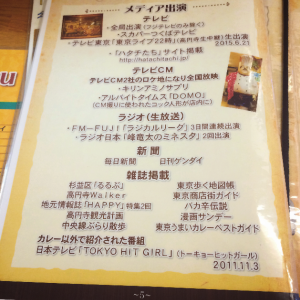 メディア出演
テレビ
・全局出演(フジテレビのみ除く)
・スカパーつくばテレビ
・テレビ東京「東京ライブ22時」(高円寺生中継)生出演
2015.6.21
・「ハタチたち」サイト掲載
http://hatachitachi.jp/
テレビCM
テレビCM2社のロケ地になり全国放映
・キリンアミノサプリ
・アルバイトタイムス「DOMO」
(CM撮りに使われたコック人形が店内に)
ラジオ(生放送)
・FM-FUJI「ラジカルリーグ」3日間連続出演
・ラジオ日本「峰竜太のミネスタ」2回出演
新聞
毎日新聞 日刊ゲンダイ
雑誌掲載
杉並区「るるぶ」 東京歩く地図帳
高円寺Walker 東京商店街ガイド
地元情報誌「HAPPY」特集2回 バカ辛伝説
高円寺観光計画 漫画サンデー
中央線ぶらり散歩 東京うまいカレーベストガイド
カレー以外で紹介された番組
日本テレビ「TOKYO HIT GIRL」(トーキョーヒットガール)
2011.11.3
-5-